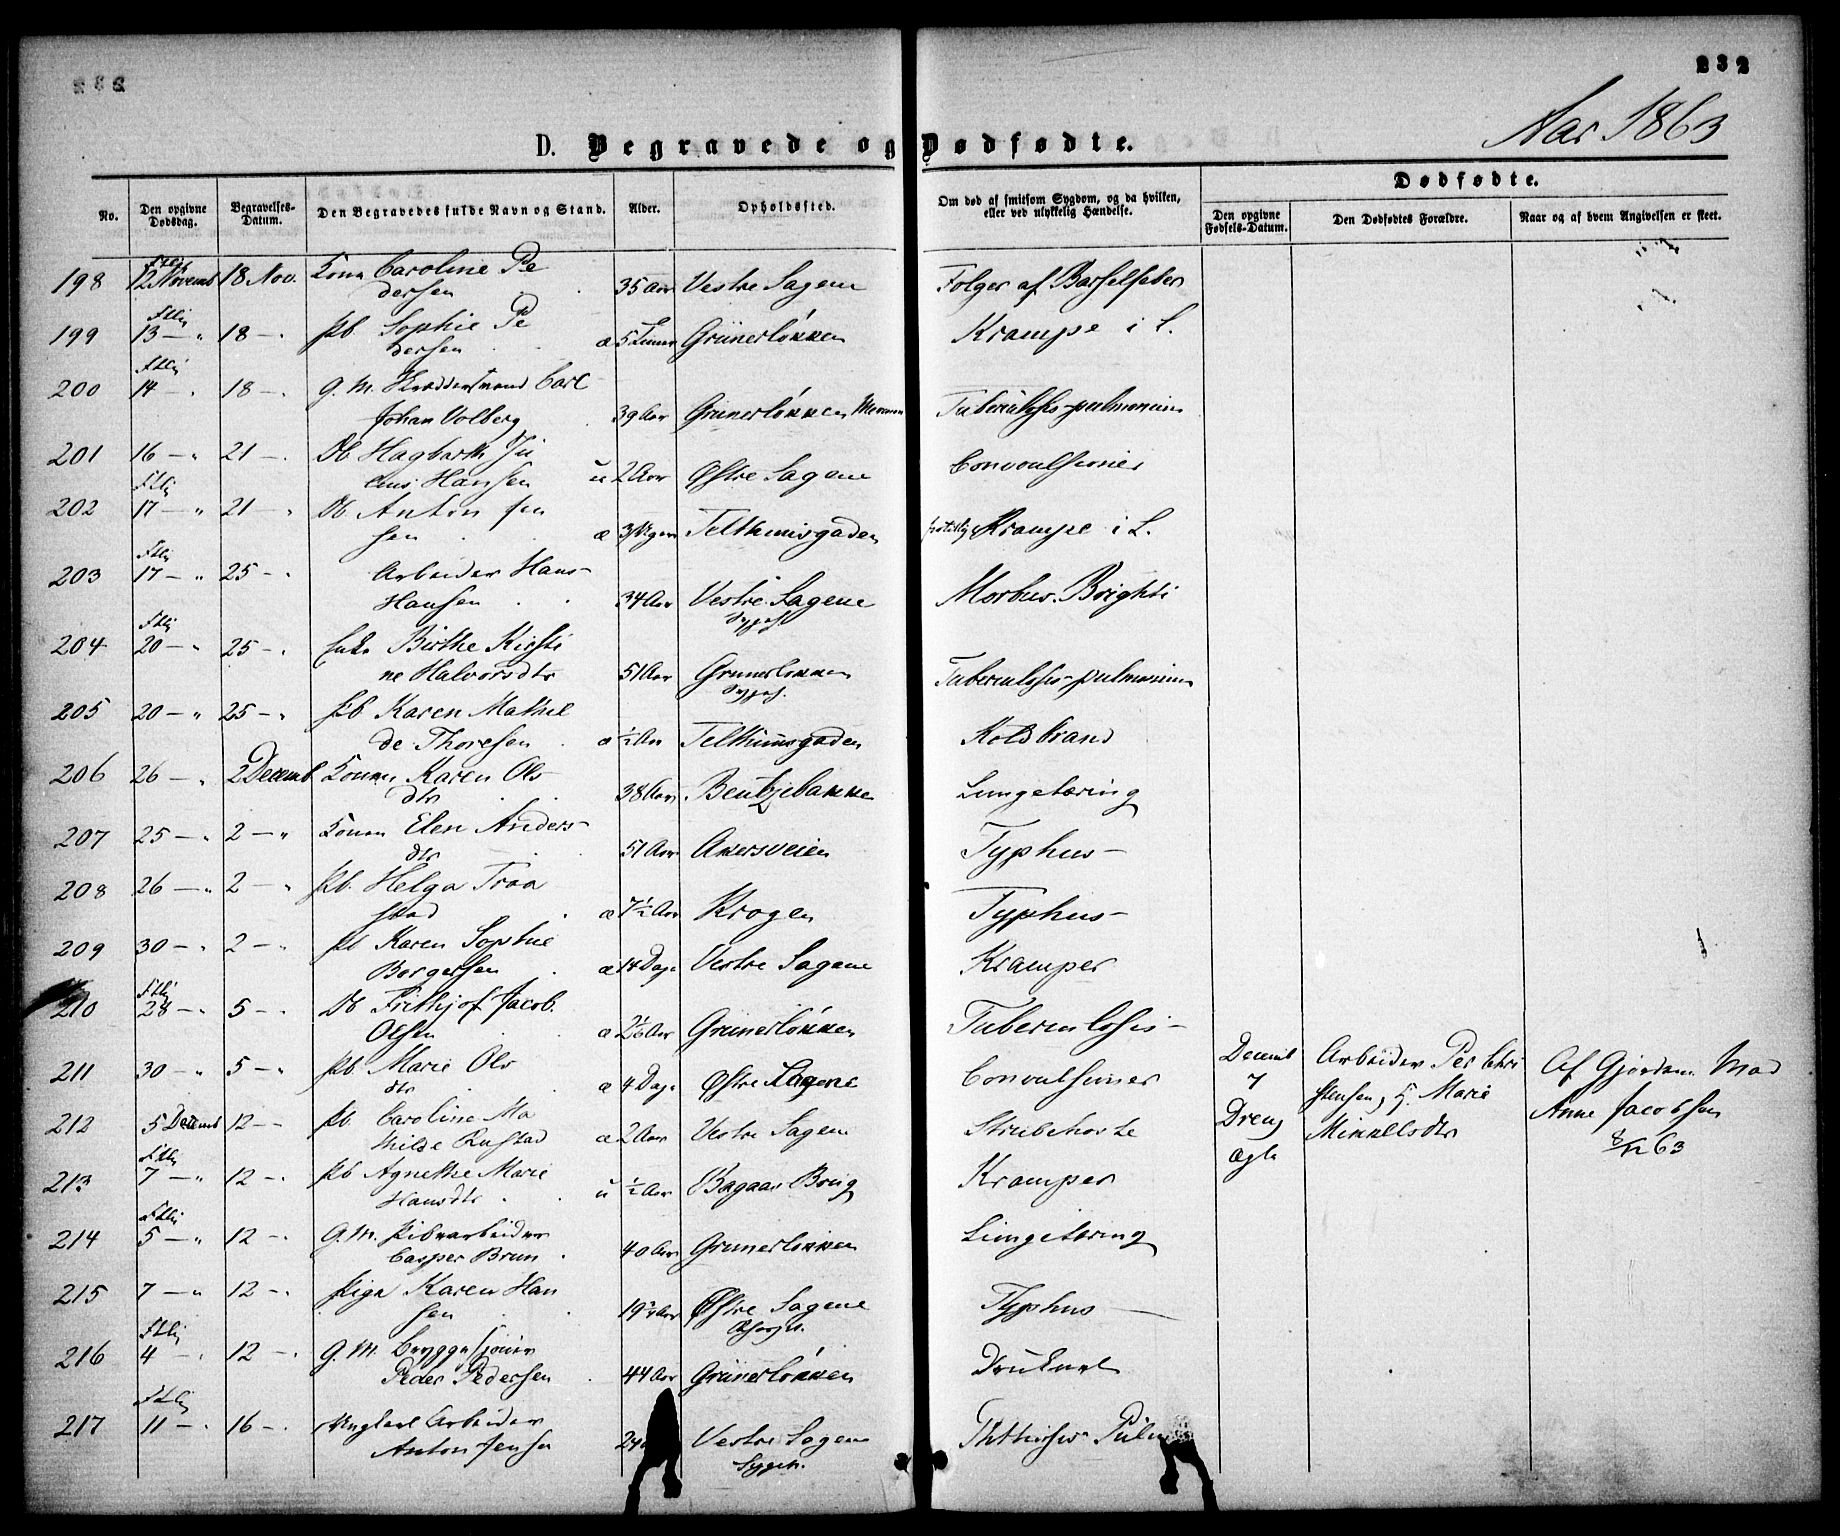 232
Aar 1863
D. Begravede og Dødfødte.
No. Den opgivne Dødsdag. Begravelses-Datum. Den Begravedes fulde Navn og Stand. Alder. Opholdssted. Om død af smitsom Sygdom, og da hvilken, eller ved ulykkelig Hændelse. Dødfødte.
Den opgivne Fødsels-Datum. Den Dødfødtes Forældre. Naar og af hvem Angivelsen er skeet.
198 12 Novemb 18 Nov. Kona Caroline Pe
dersen 35 Aar Vestre Sagene Følger af Barselfeber
199 13 — " 18 — Pb Sophie Pe
dersen æ 5 Timer Grünerløkken Krampe i L.
200 14 — " 18 — G. M. Carl
Johan Volberg 39 Aar Grünerløkken Tuberculosis pulmonum
201 16 — " 21 — Db Hagbarth Ju
lius Hansen u 2 Aar Østre Sagene Convulsioner
202 17 — " 21 — " Db. Anton Jen
sen æ 3 Uger Telthuusgaden Krampe i L.
203 17 — " 25 — Arbeider Hans
Hansen 34 Aar Vestre Sagene Morbus Brighti
204 20 — " 25 — Enke Birthe Kirsti
ne Halvorsdtr 51 Aar Grünerløkken Tuberculosis pulmonum
205 20 — " 25 — Pb Karen Mathil
de Thoresen æ ½ Aar Telthuusgaden Koldbrand
206 26 — " 2 Decemb Konen Karen Ols
dtr 38 Aar Bentzebakke Lungetæring
207 25 — " 2 — " Konen Elen Anders
dtr 51 Aar Akersveien Typhus
208 26 — " 2 — " Pb. Helga Traa
stad æ 7½ Aar Krogen Typhus
209 30 — " 2 — Pb Karen Sophie
Borgersen æ 14 Dage Vestre Sagene Kramper
210 28 — " 5 — Db Frithjof Jacob
Olsen æ 2 1/6 Aar Grünerløkken Tuberculosis
211 30 — " 5 — " Pb. Marie Ols
dtr æ 4 Dage Østre Sagene Convulsioner
Decemb 7 Dreng Ægte
Arbeider Per Chri
stensen, H. Marie
Mikkelsdtr
Af Gjordem. Mad
Anne Jacobsen
8/12 63
212 5 Decemb 12 — Pb. Caroline Ma
thilde Rustad æ 2 Aar Vestre Sagene Strubehoste
213 7 — " 12 — Pb Agnethe Marie
Hansdtr u ½ Aar Kramper
214 5 — " 12 — G. M. Fabrarbeider
Casper Brun 40 Aar Grünerløkken Lungetæring
215 7 — " 12 — Pige Karen Han
sen 19 ¾ Aar Østre Sagene Typhus
216 4 — " 12 — G. M. Bryggesjouer
Peder Pedersen 44 Aar Grünerløkken Druknet
217 11 — " 16 — Ungkarl Arbeider
Anton Jensen Vestre Sagene
Sygeh.